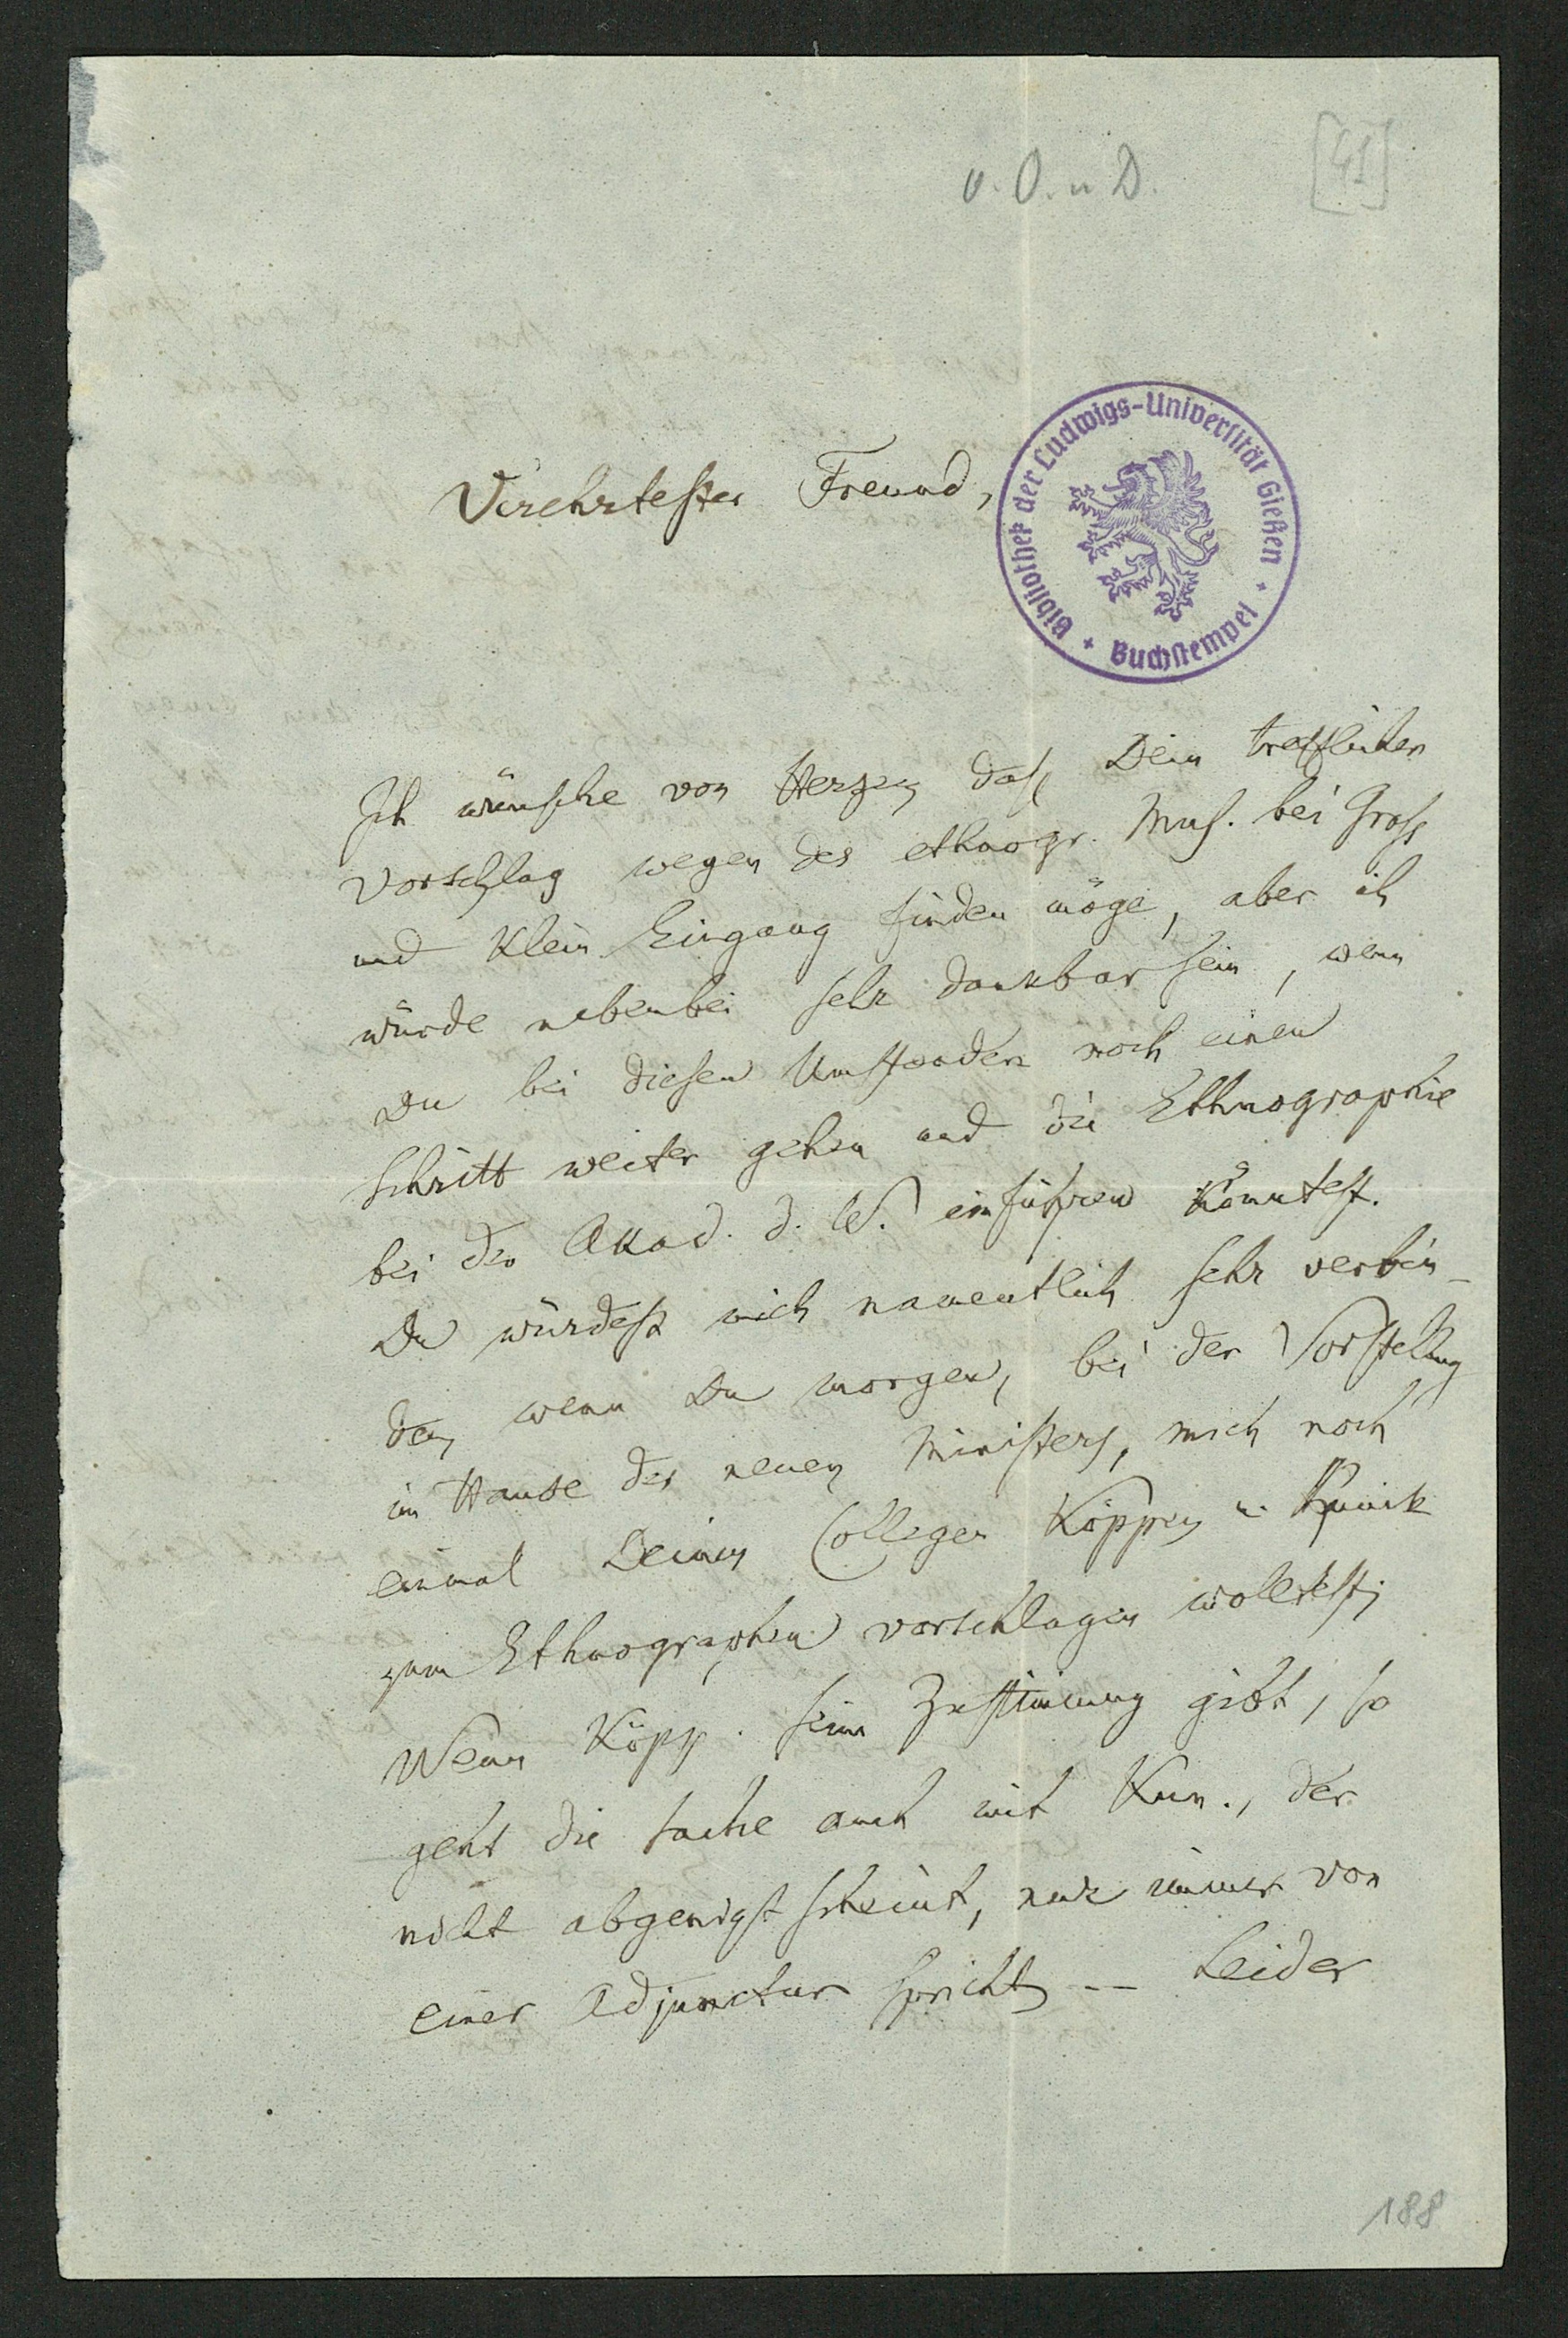 o. O. u D.
[41]
Verehrtester Freund,
Bibliothek der Ludwigs-Universität Gießen
+ Buchstempel +
Ich wünsche von Herzen daß Dein trefflicher
Vorschlag wegen des ethnogr. Mus. bei Groß
und Klein Eingang finden möge, aber ich
würde nebenbei sehr dankbar sein, wenn
Du bei diesen Umständen noch einen
Schritt weiter gehen und die Ethnographie
bei der Akad. d. W. einführen könntest.
Du würdest mich namentlich sehr verbin-
den, wenn Du morgen, bei der Vorstellung
im Hause des neuen Ministers, mich noch
einmal Deinen Collegen Köppen u. Kunik
zum Ethnographen vorschlagen wolltest;
Wenn Köpp. seine Zustimmung gibt, so
geht die Sache auch mit Kun., der
nicht abgeneigt scheint, nur immer von
einer Adjunctur spricht -- Leider
188